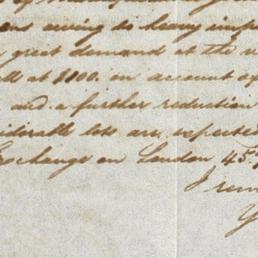 owing to heavy
great demand at the
at $100. on account of
and a further reduction
lots are expected
Exchange on London 45
I rem
Y